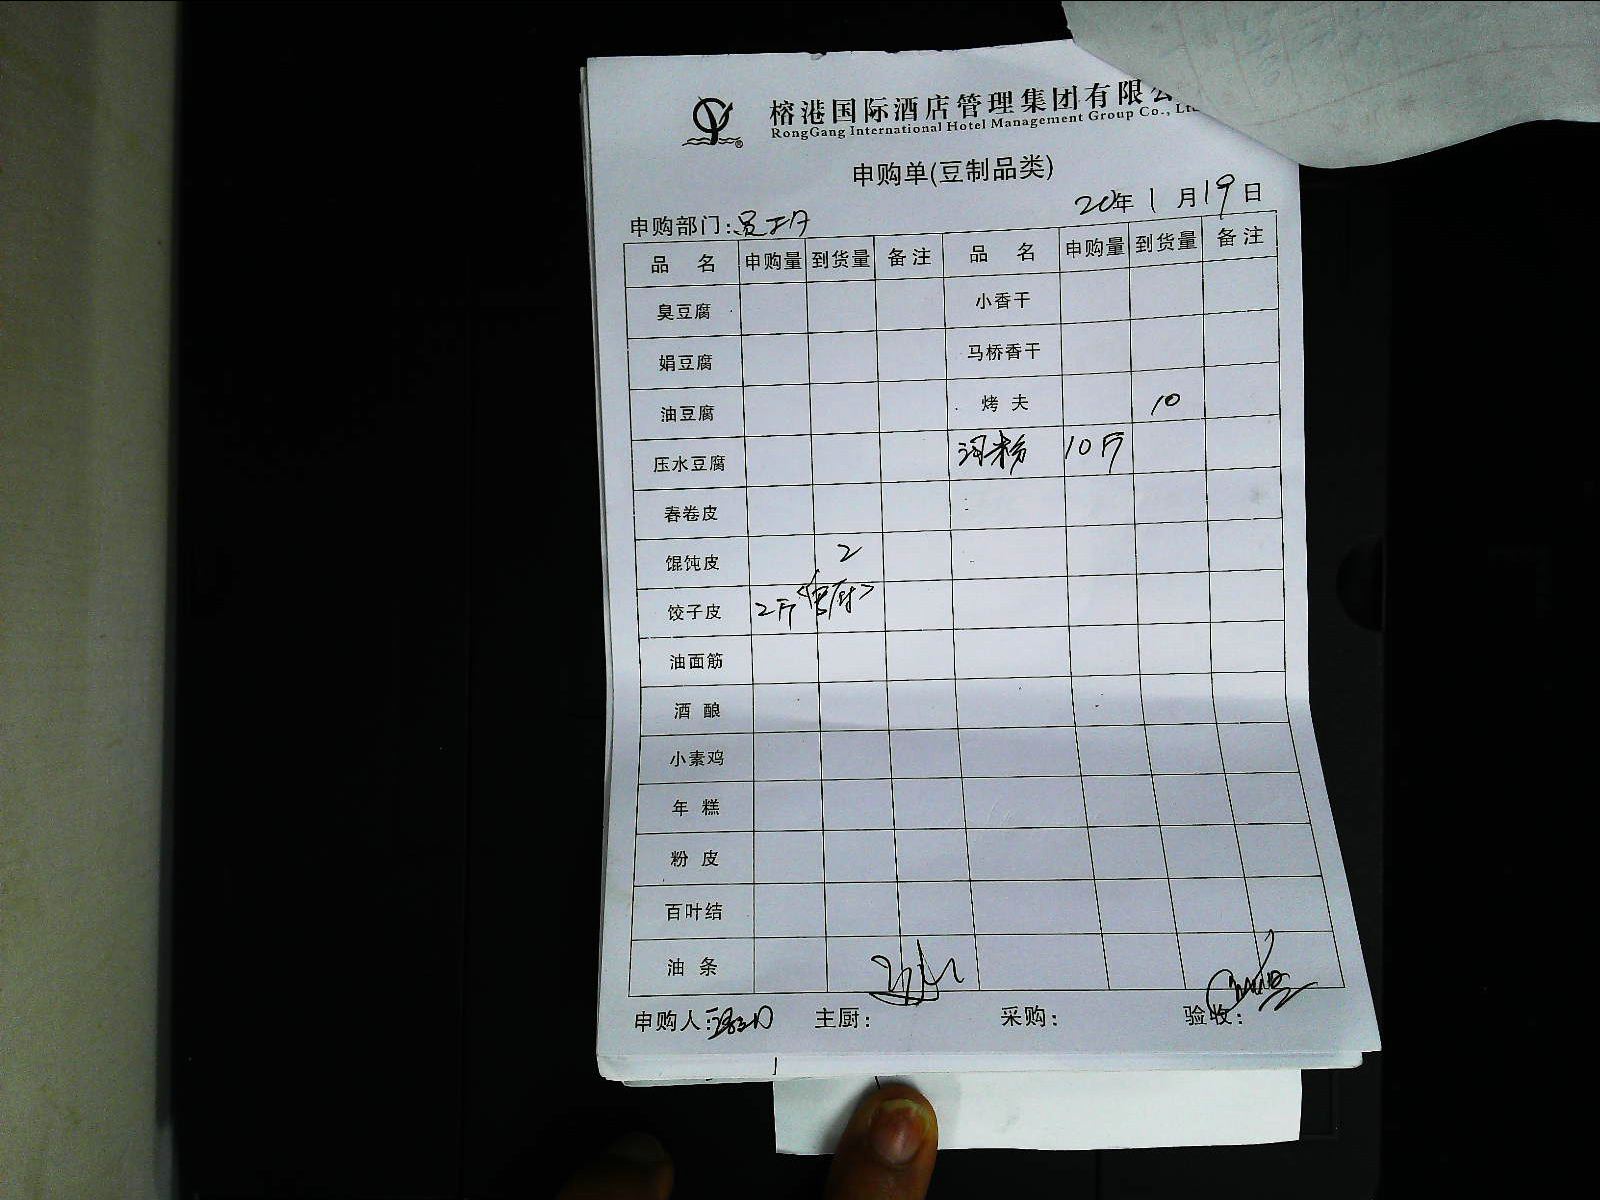 榕港国际酒店管理集团有限公
RongGang International Hotel Management Group Co., Ltd
申购单(豆制品类)
20年 1 月 19 日
申购部门:员工
品 名 申购量 到货量 备注 品 名 申购量 到货量 备注
臭豆腐 小香干
娟豆腐 马桥香干
油豆腐 烤 夫 10
压水豆腐 河粉 10斤
春卷皮
馄饨皮 2
饺子皮 2斤
油面筋
酒 酿
小素鸡
年 糕
粉 皮
百叶结
油 条
申购人: 主厨: 采购: 验收: